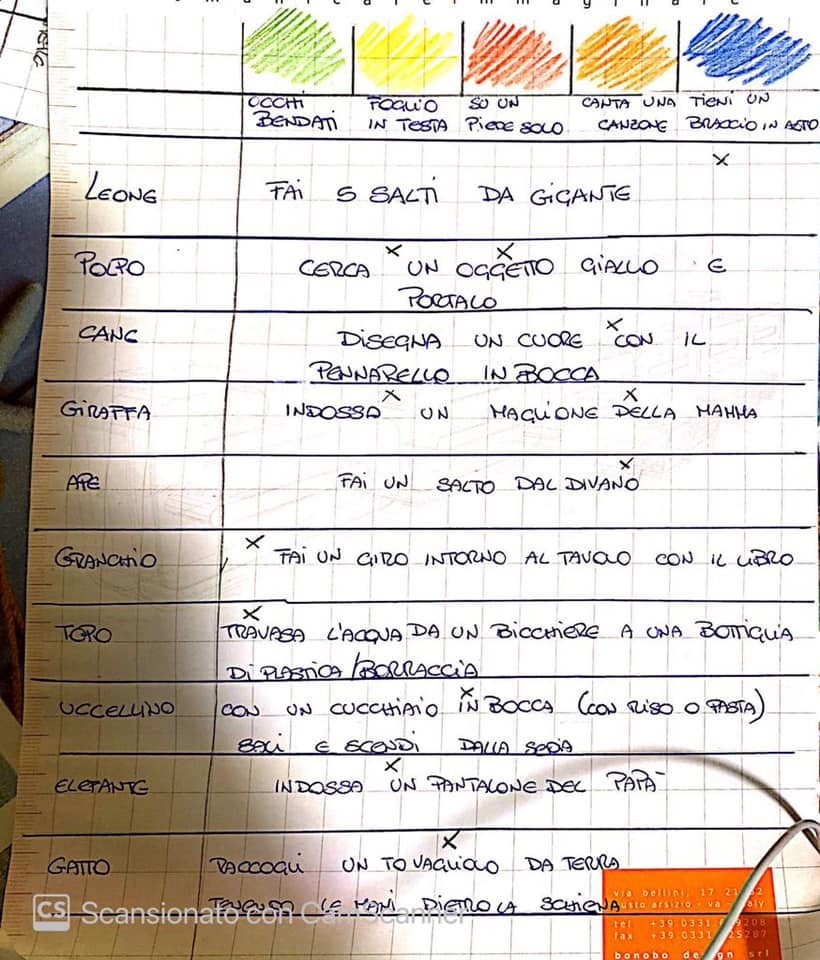 OCCHI BENDATI
FOGLIO IN TESTA
SU UN PIEDE SOLO
CANTA UNA CANZONE
TIENI UN BRACCIO IN ALTO
X
LEONE FAI 5 SALTI DA GIGANTE
X X
POLPO CERCA UN OGGETTO GIALLO E
PORTALO
X
CANE DISEGNA UN CUORE CON IL
PENNARELLO IN BOCCA
X X
GIRAFFA INDOSSA UN MAGLIONE DELLA MAMMA
X
APE FAI UN SALTO DAL DIVANO
X
GRANCHIO FAI UN GIRO INTORNO AL TAVOLO CON IL LIBRO
X
TOPO TRAVASA L'ACQUA DA UN BICCHIERE A UNA BOTTIGLIA
DI PLASTICA/BORRACCIA
X
UCCELLINO CON UN CUCCHIAIO IN BOCCA (CON RISO O PASTA)
SALI E SCENDI DALLA SEDIA
X
ELEFANTE INDOSSA UN PANTALONE DEL PAPÀ
X
GATTO RACCOGLI UN TOVAGLIOLO DA TERRA
TENENDO LE MANI DIETRO LA SCHIENA
CS Scansionato con CamScanner
via bellini, 17
busto arsizio - va -
tel +39 0331
fax +39 0331
bonobo design srl